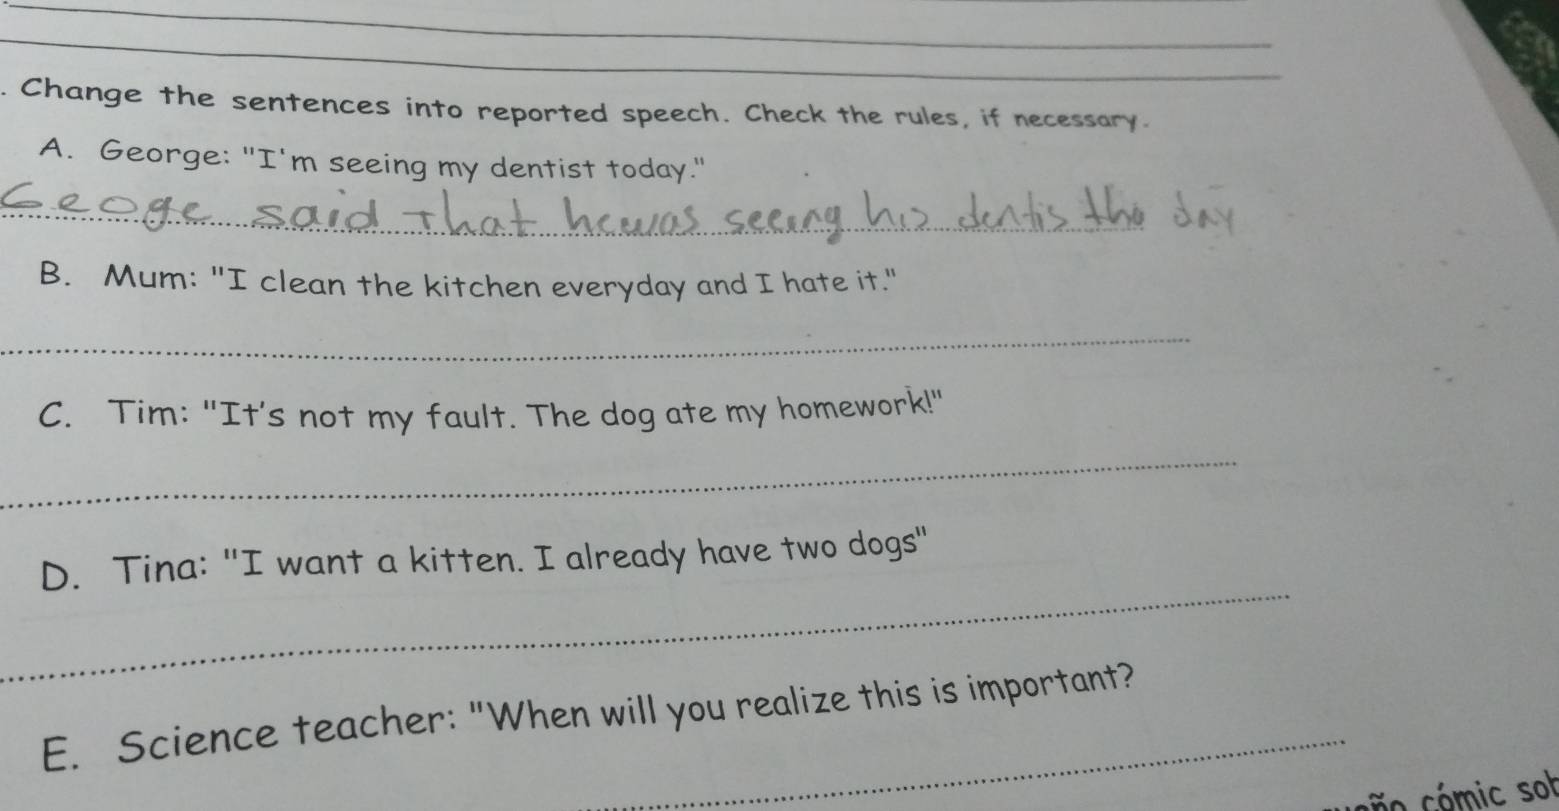 . Change the sentences into reported speech. Check the rules, if necessary.
A. George: "I'm seeing my dentist today."
Geoge said that he was seeing his dentis tho day
B. Mum: "I clean the kitchen everyday and I hate it."
C. Tim: "It's not my fault. The dog ate my homework!"
D. Tina: "I want a kitten. I already have two dogs"
E. Science teacher: "When will you realize this is important?
cómic